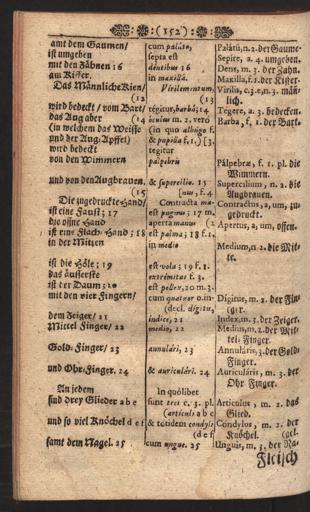 :(152):
amt dem Gaumen/
ist umgeben
mit den Zähnen 16
am Kiffer.
Das Männliche Kien/
(12
wird bedeckt / vom Bart/
das Aug aber (14
(in welchem das Weisse
und der Aug-Apffel)
wird bedeckt
von den Wimmern
und von den Augbrauen.
(15
Die zugedruckte Hand/
ist eine Faust; 17
die offne Hand
ist eine Flach-Hand; 18
in der Mitten
ist die Höle; 19
das äusserste
ist der Daum; 20
mit den vier Fingern/
dem Zeiger/ 21
Mittel Finger/ 22
Gold-Finger/ 23
und Ohr-Finger. 24
An jedem
sind drey Glieder a b c
und so viel Knöchel d e f
samt dem Nagel. 25
cum palato,
septa est
dentibus 16
in maxilla.
Virile mentum,
(13
tegitur, barbâ; 14
oculus m. 2. vero
(in quo albugo f.
& pupilla f. 1.) [3.
tegitur
palpebris
& supercilio. 15
[nus, f. 4.
Contracta ma-
est pugnus; 17 m.
aperta manus (2
est palma; 18 f. 1.
in medio
est vola; 19 f. 1.
extremitas f. 3.
est pollex, 20 m. 3.
cum quatuor o. in-
(decl. digitis,
indice, 21
medio, 22
annulari, 23
& auriculari. 24
In quôlibet
sunt tres c. 3. pl.
(articuli a b c
& totidem condyli
(d e f
cum ungue. 25
Palatũ, n. 2. der Gaume.
Sepire, a. 4. umgeben.
Dens, m. 3. der Zahn.
Maxilla, f. 1. der Kiffer.
Virilis, c. 3. e, n. 3. män-
lich.
Tegere, a. 3. bedecken.
Barba, f. 1. der Bart.
Palpebræ, f. 1. pl. die
Wimmern.
Supercilium, n. 2. die
Augbrauen.
Contractus, a, um, zu-
gedruckt.
Apertus, a, um, offen.
Medium, n. 2. die Mit-
te.
Digitus, m. 2. der Fin-
ger.
Index, m. 3. der Zeiger.
Medius, m. 2. der Mit-
tel-Finger.
Annularis, 3. der Gold-
Finger.
Auricularis, m. 3. der
Ohr Finger.
Articulus, m. 2. das
Glied.
Condylus, m. 2. der
Knöchel. (gel.
Unguis, m. 3. der Na-
Fleisch